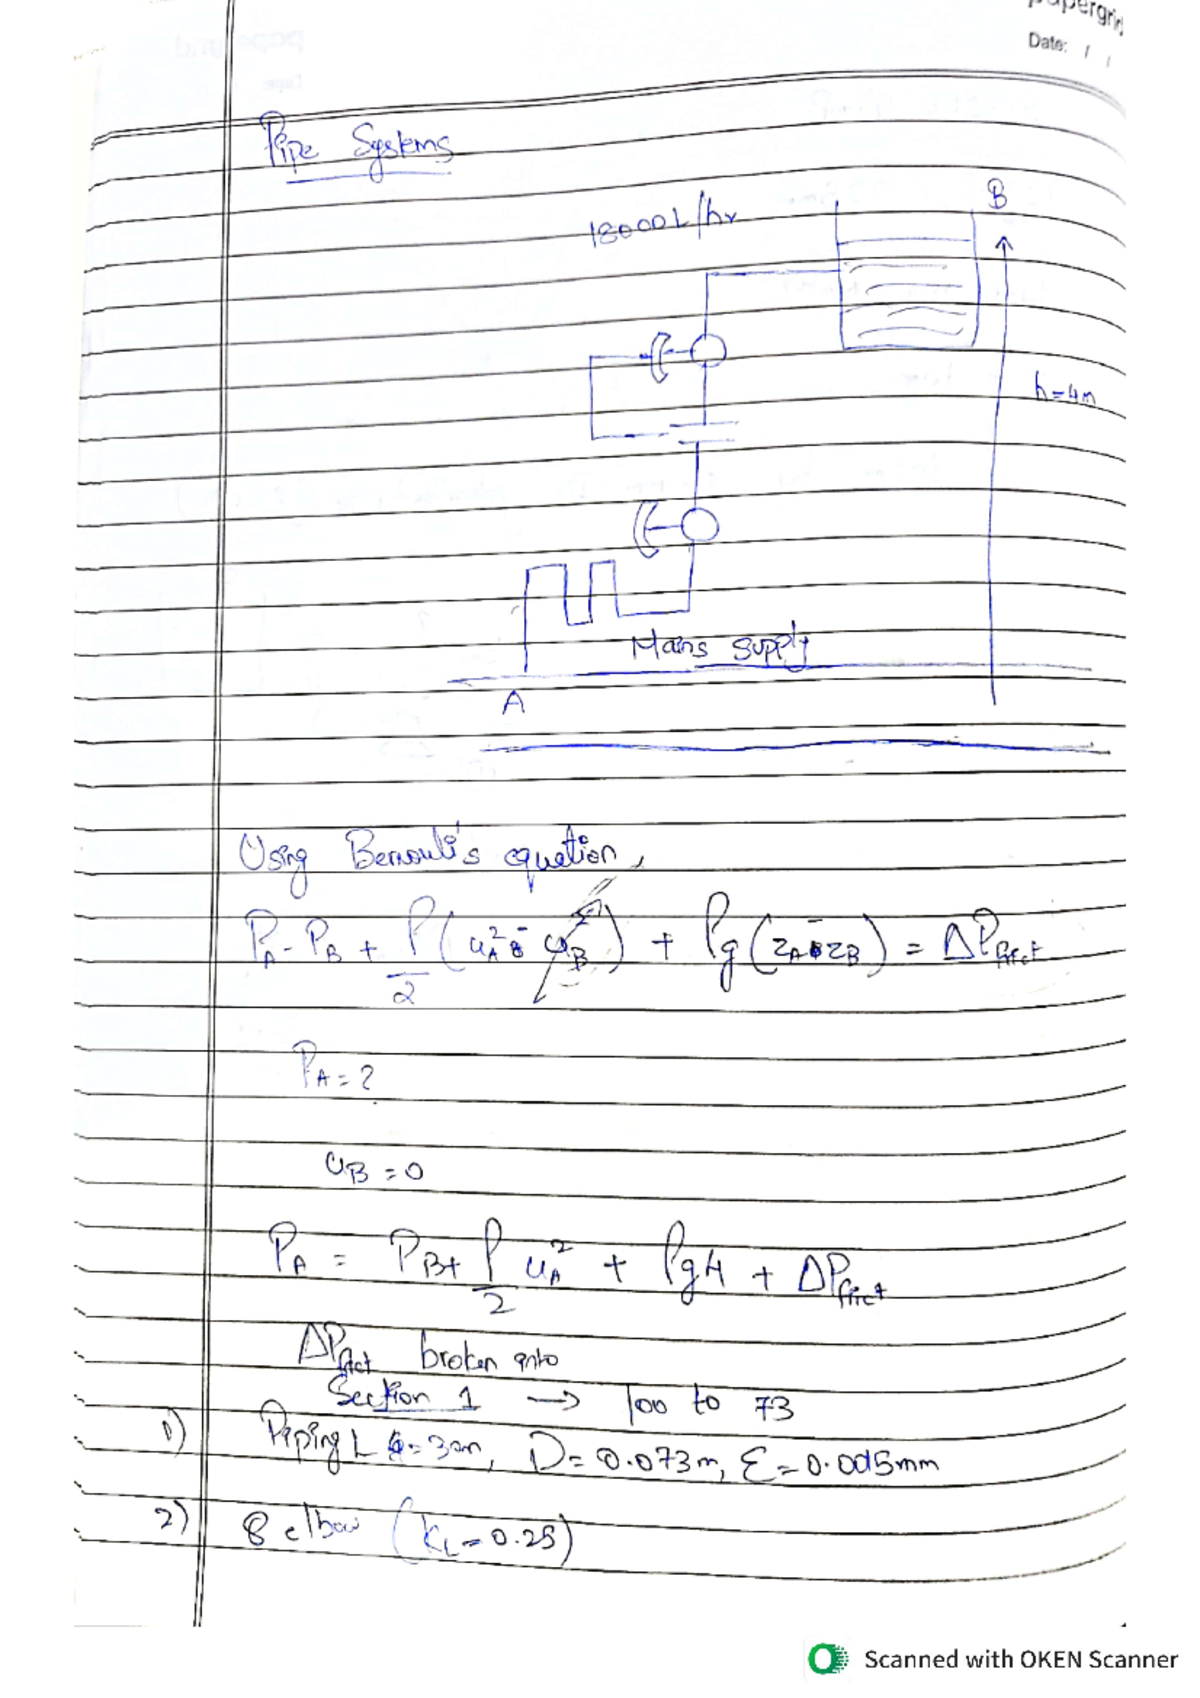 papergrid
Date: / /
Pipe Systems
18000L/hr
B
h=4m
Mains supply
A
Using Bernouli's equation,
P_A - P_B + ρ/2 (u_A² - u_B²) + ρg (z_A - z_B) = ΔP_frict
P_A = ?
u_B = 0
P_A = P_B + ρ/2 u_A² + ρg4 + ΔP_frict
ΔP_frict broken into
Section 1 → 100 to 73
1) Piping L = 30m, D = 0.073m, ε = 0.0015mm
2) 8 elbow (K_L = 0.25)
Scanned with OKEN Scanner